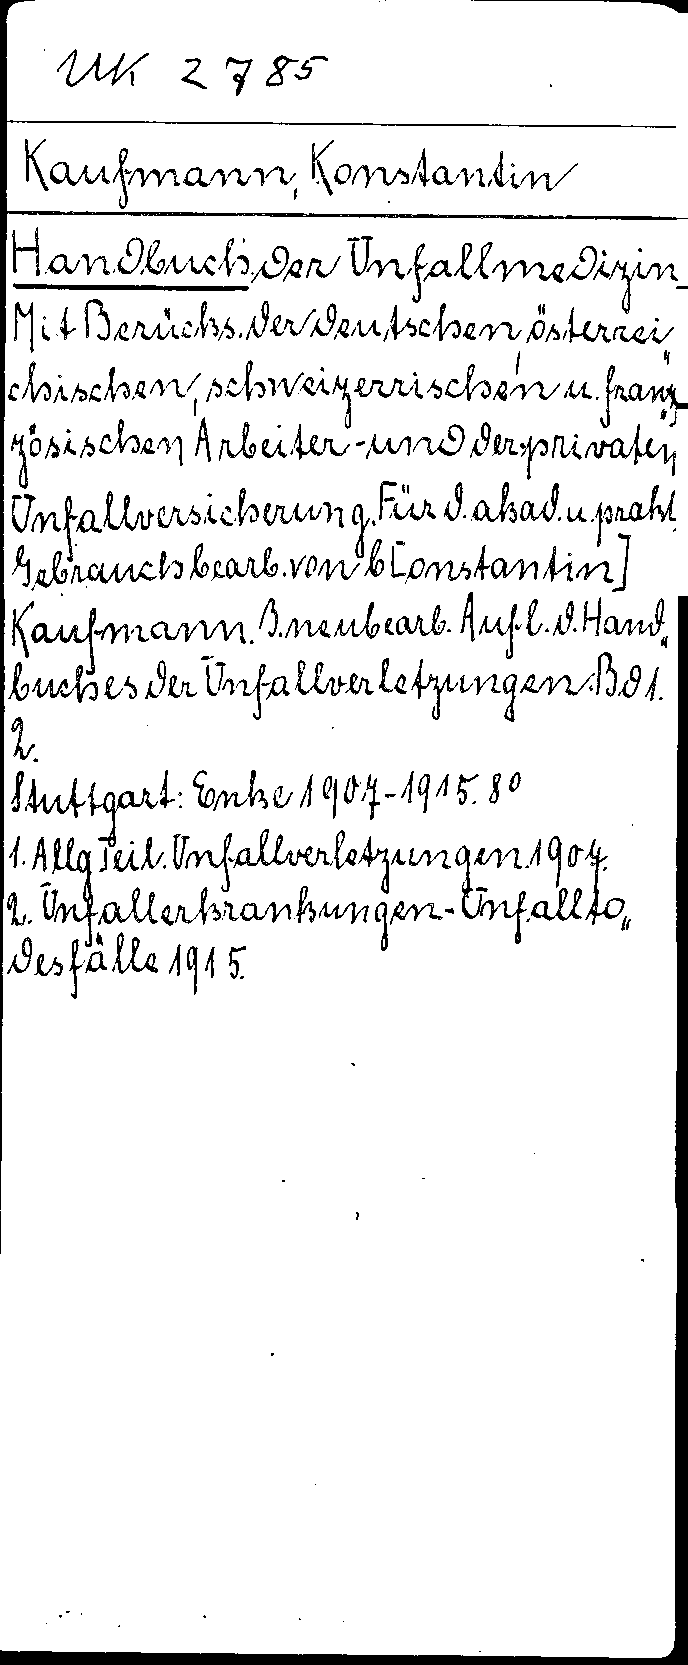 UK 2785
Kaufmann, Konstantin
Handbuch der Unfallmedizin
Mit Berücks. der deutschen, österrei„
chischen, schweizerrischen u. franz„
zösischen Arbeiter- und der privaten
Unfallversicherung. Für d. akad. u. prakt.
Gebrauch bearb. von C[onstantin]
Kaufmann. 3. neubearb. Aufl. d. Hand„
buches der Unfallverletzungen. Bd 1.
2.
Stuttgart: Enke 1907-1915. 8°
1. Allg Teil. Unfallverletzungen. 1907.
2. Unfallerkrankungen-Unfallto„
desfälle 1915.